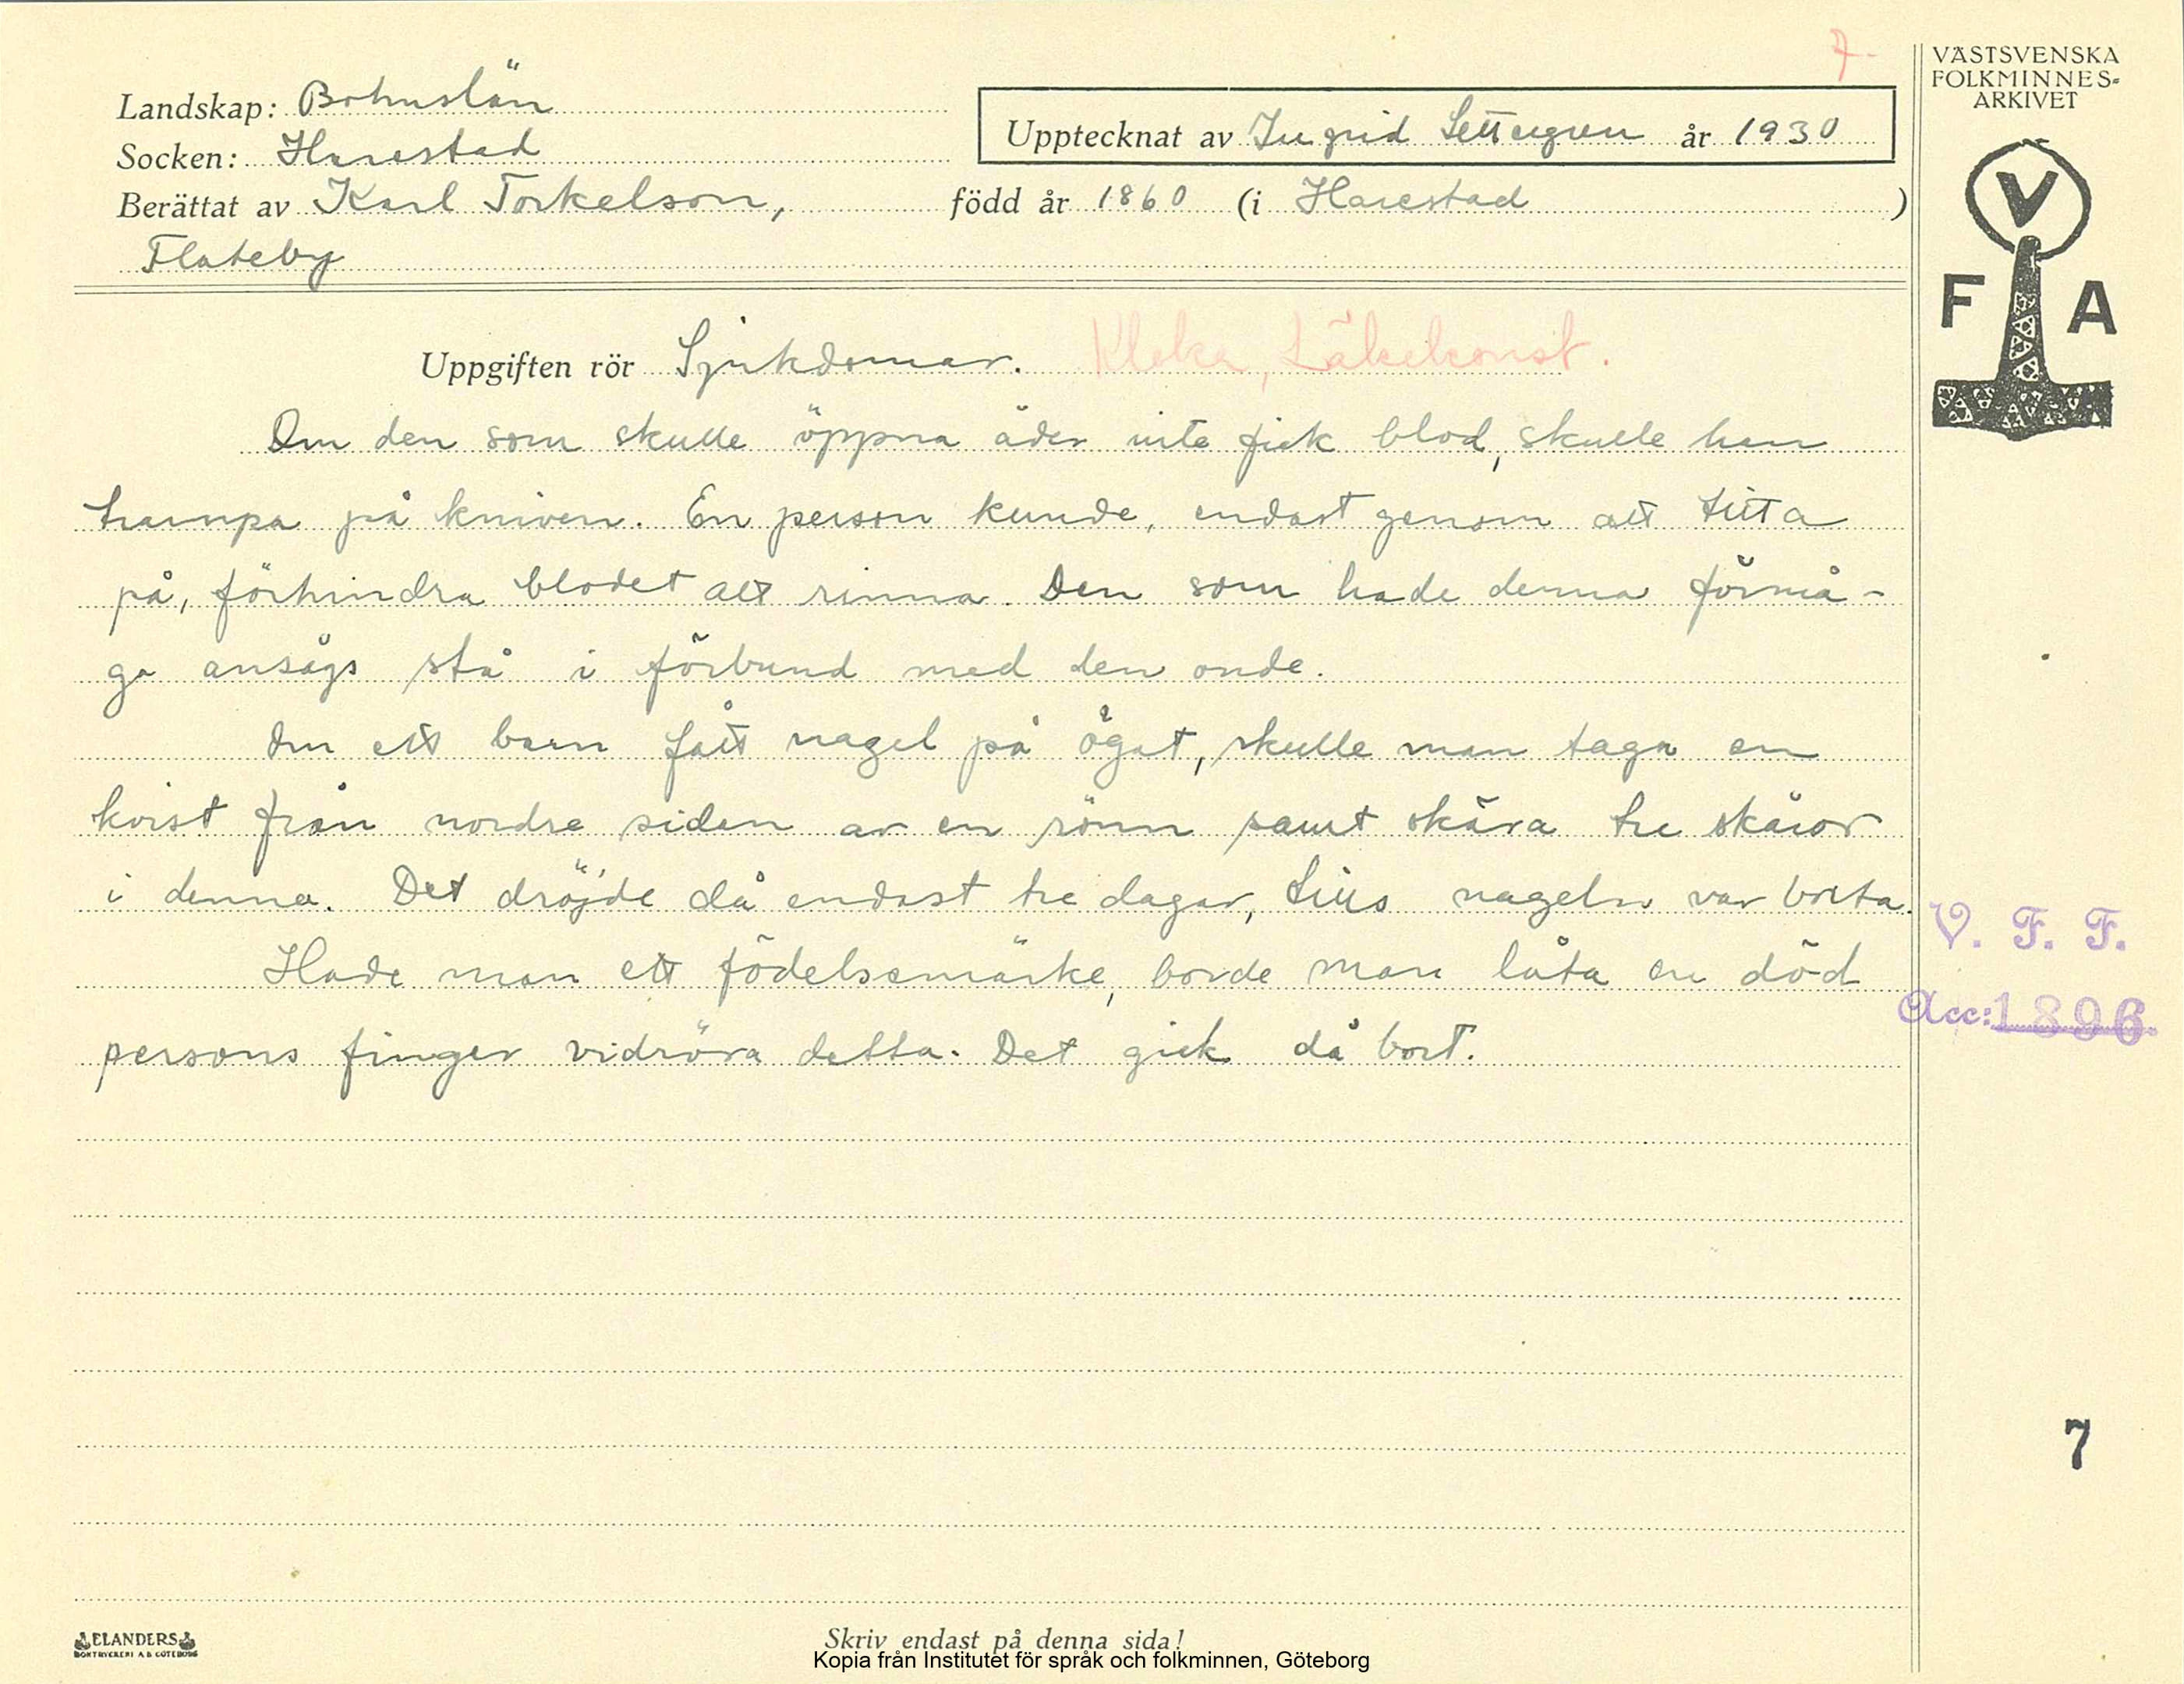 7-
VÄSTSVENSKA
FOLKMINNES-
ARKIVET
Landskap: Bohuslän
Upptecknat av Ingrid Settergren år 1930
Socken: Harestad
Berättat av Karl Torkelson, född år 1860 (i Harestad )
Flateby
V
F A
Uppgiften rör Sjukdomar. Kloka, Läkekonst.
Om den som skulle öppna åder inte fick blod, skulle han
trampa på kniven. En person kunde, endast genom att titta
på, förhindra blodet att rinna. Den som hade denna förmå-
ga ansågs stå i förbund med den onde.
Om ett barn fått nagel på ögat, skulle man taga en
kvist från nordre sidan av en rönn samt skära tre skåror
i denna. Det dröjde då endast tre dagar, tills nageln var borta.
Hade man ett födelsemärke, borde man låta en död
persons finger vidröra detta. Det gick då bort.
V. F. F.
Acc: 1896
7
ELANDERS
BOKTRYCKERI A B GÖTEBORG
Skriv endast på denna sida!
Kopia från Institutet för språk och folkminnen, Göteborg